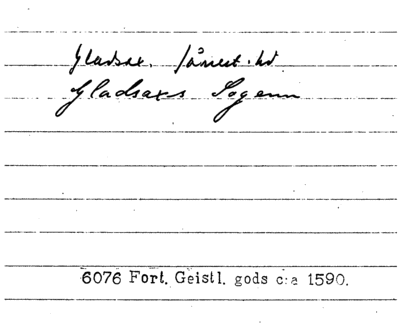 Gladsax. Järrest. hd
Gladsaxs Sogenn
6076 Fort. Geistl. gods c:a 1590.